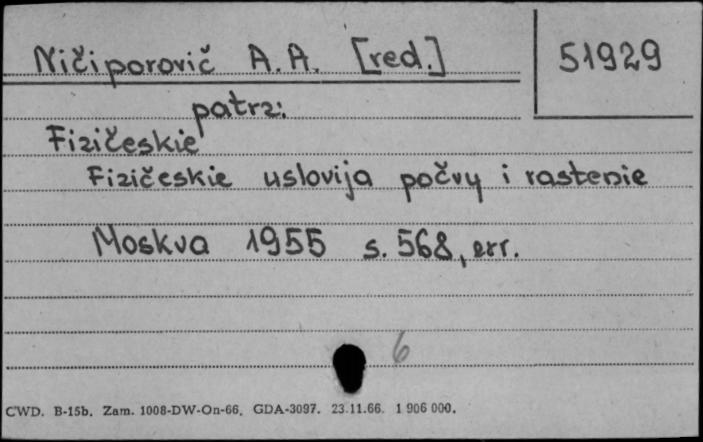 Ničiporovič A.A. [red.]
51929
patrz:
Fizičeskie
Fizičeskie uslovija počvy i rastenie
Moskva 1955 s. 568, err.
6
CWD. B-15b. Zam. 1008-DW-On-66. GDA-3097. 23.11.66. 1 906 000.